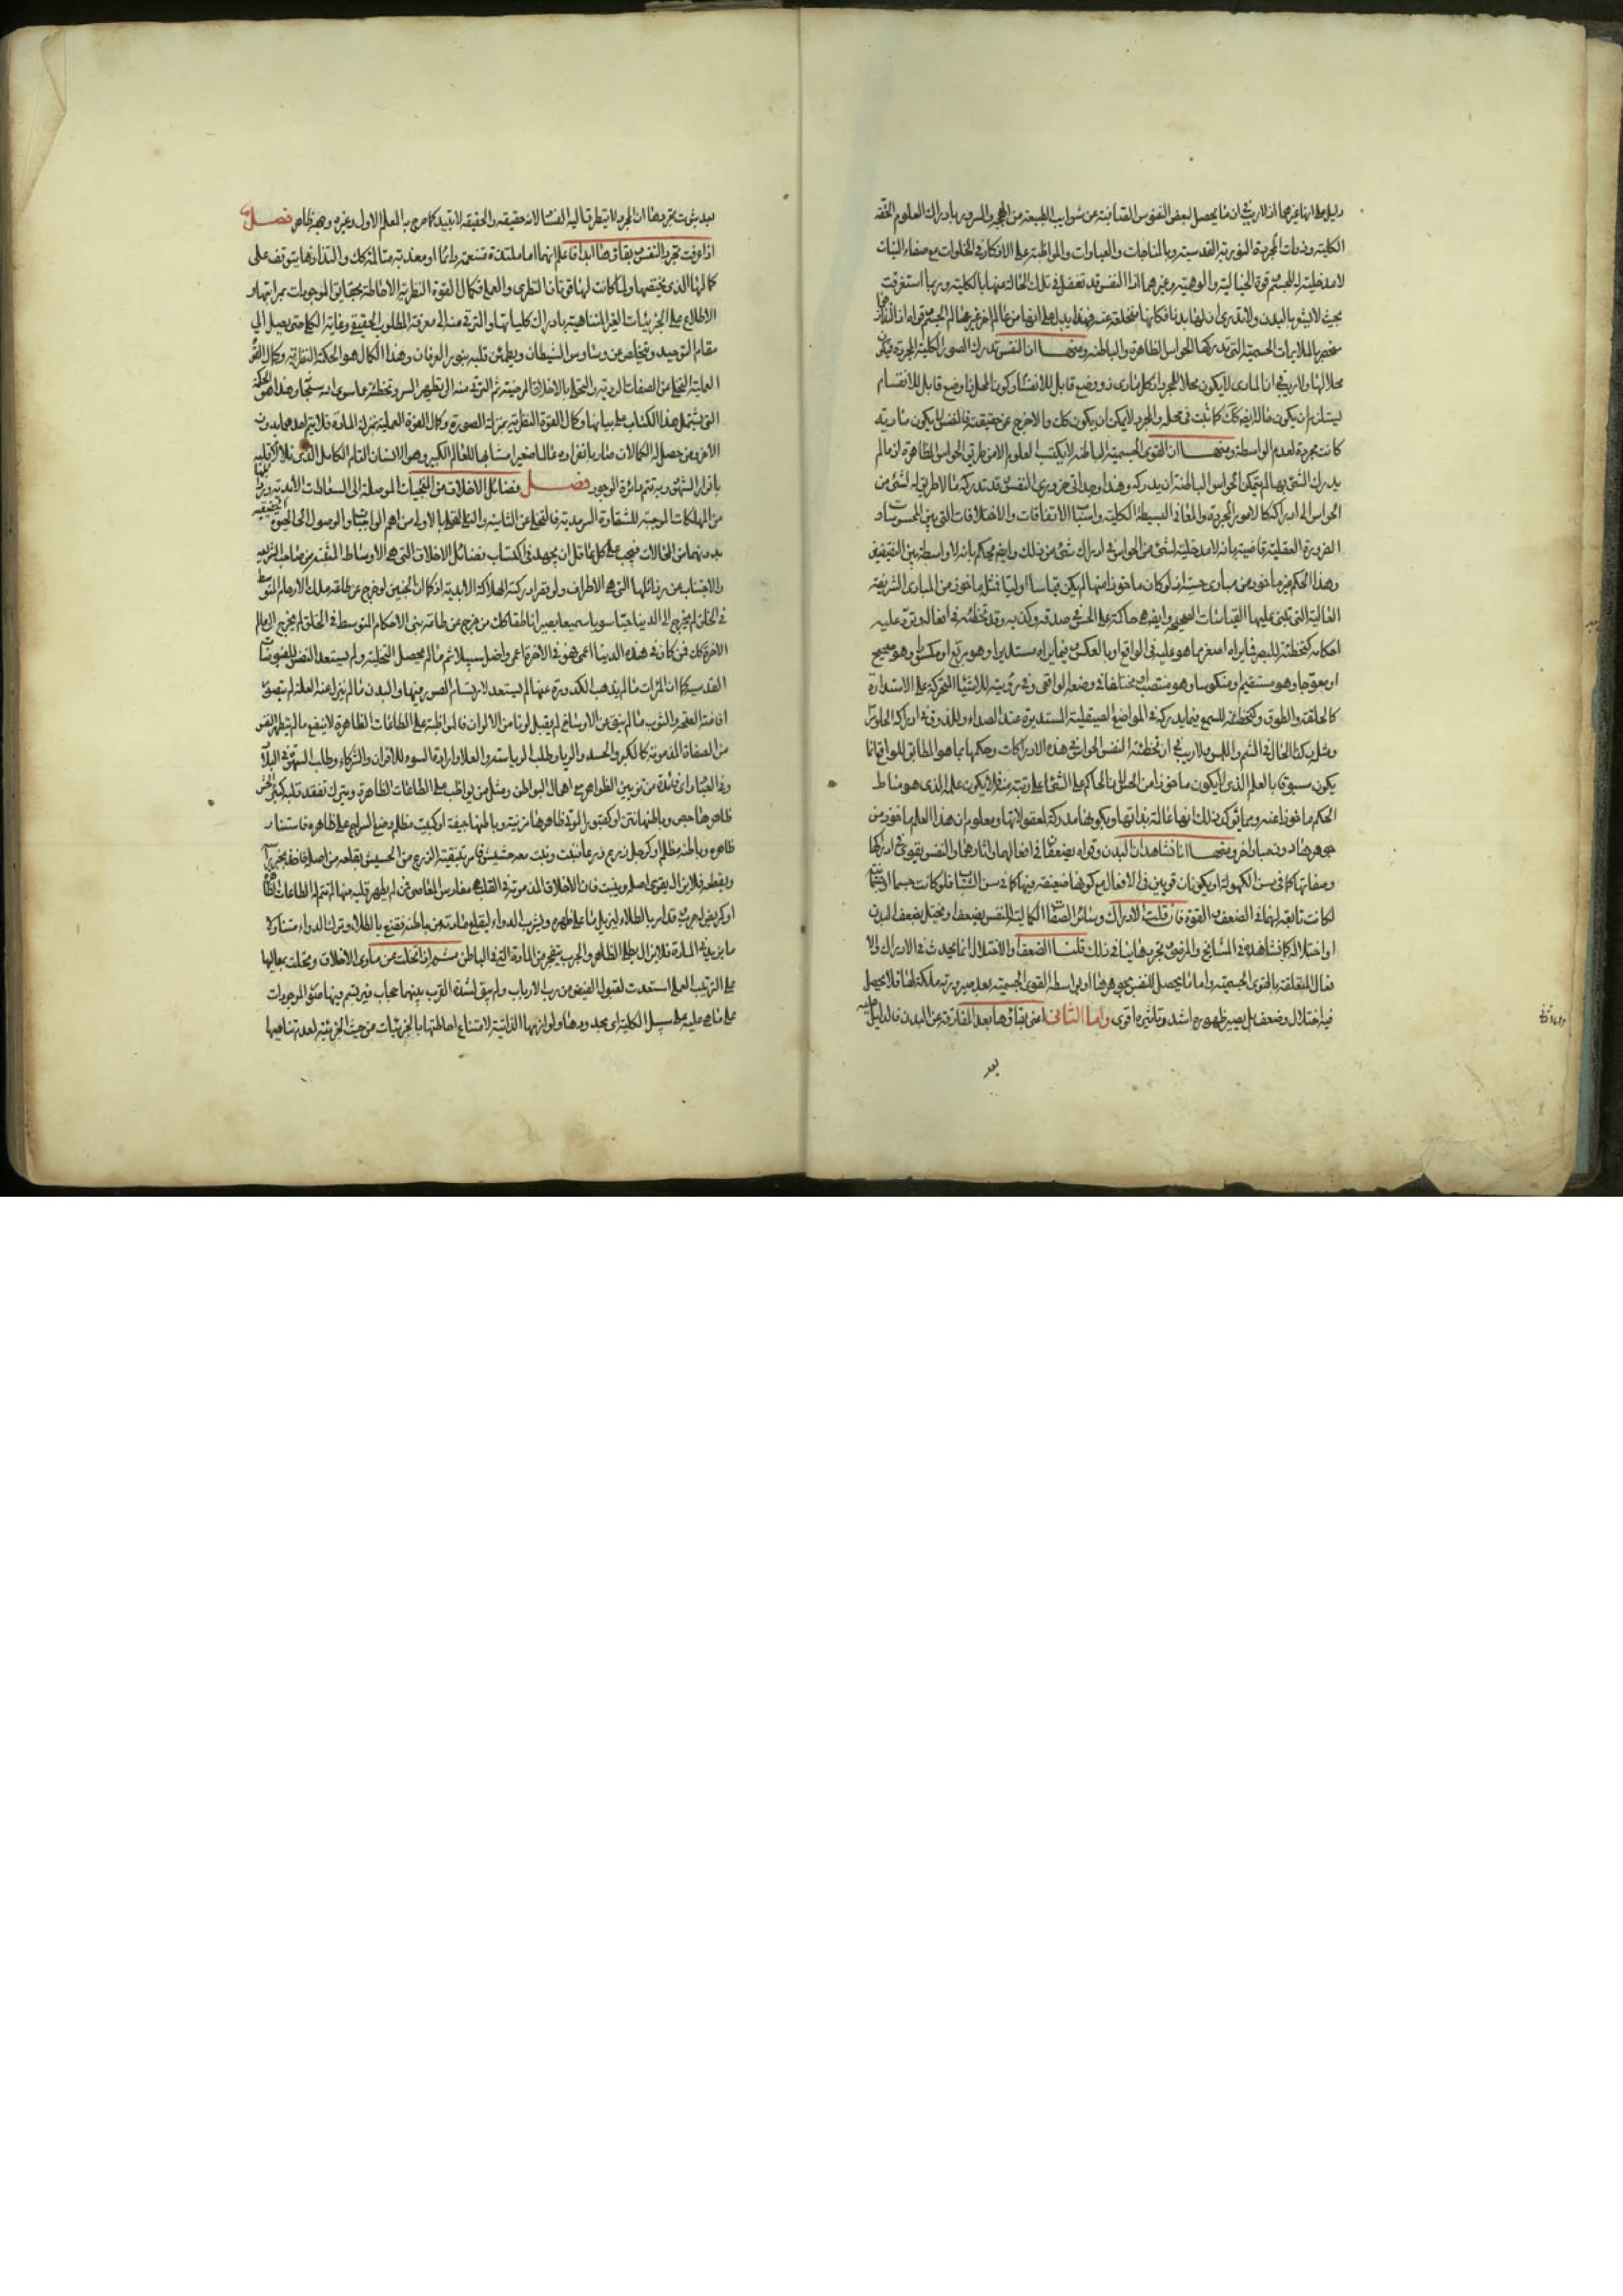 دليل على انها غيرهما انه لا ريب في ان ما يحصل لبعض النفوس الصافية عن شوايب الطبيعة من البهجة والسرور بادراك العلوم الحقة
الكلية وذوات المجردة النورية القدسية وبالمناجات والعبادات والمواظبة على الاذكار في الخلوات مع صفاء النيات
لا مدخلية للجسم وقوة الخيالية والوهمية وغيرهما اذ النفس قد تغفل في تلك الحالة عنها بالكلية وربما استغرقت
بحيث لا يشعر بالبدن ولا تدرى ان لها بدنا فكانها منخلعة عنه فهذا يدل على انها من عالم اخر غير عالم الجسم وقواه اذ التذاذ
منحصر بالملايمات الجسمية التي تدركها الحواس الظاهرة والباطنة ومنها ان النفس تدرك الصور الكلية المجردة فيكون
محلا لها ولا ريب في ان المادي لا يكون محلا للمجرد اذ كل مادي ذو وضع قابل للانقسام وكون المحل ذا وضع قابل للانقسام
يستلزم ان يكون حاله ايضا كك كما ثبت في محله والمجرد لا يمكن ان يكون كك والا خرج عن حقيقته فالنفس لا يكون مادية
كانت مجردة لعدم الواسطة ومنها ان القوى الجسمية الباطنة لا يكتسب العلوم الا من طرق الحواس الظاهرة اذ ما لم
يدرك الشيء بها لم يتمكن الحواس الباطنة ان يدركه وهذا وجداني ضروري النفس قد تدرك ما لا طريق له لشيء من
الحواس الى ادراكه كالامور المجردة والمعاني البسيطة الكلية واسباب الاتفاقات والاختلافات التي بين المحسوسات و
الضرورة العقلية قاضية بانه لا مدخلية لشيء من الحواس في ادراك شيء من ذلك وايضا يحكم بانه لا واسطة بين النقيضين
وهذا الحكم غير ماخوذ من مبادى حسية اذ لو كان ماخوذا منها لم يكن قياسا اوليا فمثله ماخوذ من المبادى الشريفة
العالية التي تبتنى عليها القياسات الصحيحة وايضا هي حاكمة على الحس في صدقه وكذبه وقد تخطئه في افعاله وترد عليه
احكامه كتخطئته للبصر فيما يراه اصغر مما هو عليه في الواقع او بالعكس وفيما يراه مستديرا وهو مربع او مكسورا وهو صحيح
او معوجا وهو مستقيم او منكوسا وهو منتصب او مختلفا في وضعه الواقعي وفي رؤيته للاشياء المتحركة على الاستدارة
كالحلقة والطوق وكتخطئته للسمع فيما يدركه في المواضع الصيقلية المستديرة عند الصداء وللذوق في ادراكه الحلو مرا
ومثله كذا الحال في الشم واللمس ولا ريب في ان تخطئة النفس الحواس في هذه الادراكات وحكمها بما هو المطابق للواقع انما
يكون مسبوقا بالعلم الذي لا يكون ماخوذا من الحس لان الحاكم على الشيء اعلى رتبة منه فلا يكون علمه الذي هو مناط
الحكم ماخوذا عنه ومما يؤكد ذلك انها عالمة بذاتها وبكونها مدركة لمعقولاتها ومعلوم ان هذا العلم ماخوذ من
جوهرها دون مبدا اخر ومنها انا نشاهد ان البدن وقواه يضعفان في افعالهما واثارهما والنفس يقوى في ادراكها
وصفاتها كما في سن الكهولة او يكونان قويين في الافعال مع كونها ضعيفة فيها كما في سن الشباب فلو كانت جسما او جسمانيا
لكانت تابعة لهما في الضعف والقوة فان قلت الادراك وسائر الصفات الكمالية للنفس يضعف او يختل بضعف البدن
او اختلاله كما نشاهد في المشايخ والمرضى وتجردها ينافي ذلك قلنا الضعف والاختلال انما يحدث في الادراك والا
فعال المتعلقة بالقوى الجسمية واما ما يحصل للنفس بجوهرها او بواسطة القوى الجسمية بعد صيرورته ملكة لها فلا يحصل
فيه اختلال وضعف بل يصير ظهوره اشد وتاثيره اقوى واما الثاني اعني بقاؤها بعد المفارقة عن البدن فالدليل عليه
بعد
بعد ثبوت تجردها ان المجرد لا يتطرق اليه الفساد لانه حقيقة والحقيقة لا تبيد كما صرح به المعلم الاول وغيره وجهه ظاهر فصل
اذا عرفت تجرد النفس وبقاؤها ابدا فاعلم انها اما ملتذة متنعمة دائما او معذبة متالمة كك والتذاذها يتوقف على
كمالها الذي يخصها ولما كانت لها قوتان النظري والعملي فكمال القوة النظرية الاحاطة بحقايق الموجودات بمراتبها و
الاطلاع على الجزئيات الغير المتناهية بادراك كلياتها والترقي منه الى معرفة المطلوب الحقيقي وغاية الكل حتى يصل الى
مقام التوحيد ويتخلص عن وساوس الشيطان ويطمئن قلبه بنور العرفان وهذا الكمال هو الحكمة النظرية وكمال القوة
العملية التخلي عن الصفات الردية والتحلي بالاخلاق المرضية ثم الترقي منه الى تطهير السر وتخليته عما سوى الله سبحانه وهذا هو الحكمة
التي يشتمل هذا الكتاب على بيانها وكمال القوة النظرية بمنزلة الصورة وكمال القوة العملية بمنزلة المادة فلا يتم احدهما بدون
الاخر ومن حصل له الكمالان صار بانفراده عالما صغيرا مشابها للعالم الكبير وهو الانسان التام الكامل الذي تلالا قلبه
بانوار الشهود وبه تتم دائرة الوجود فصل فضائل الاخلاق من المنجيات الموصلة الى السعادات الابدية ورذائلها
من المهلكات الموجبة للشقاوة السرمدية فالتخلي عن الثانية والتحلي بالاولى من اهم الواجبات والوصول الى الحيوة الحقيقية
بدونهما من المحالات فيجب على كل عاقل ان يجتهد في اكتساب فضائل الاخلاق التي هي الاوساط المثبتة من صاحب الشريعة
والاجتناب عن رذائلها التي هي الاطراف ولو قصر ادركته الهلاكة الابدية اذ كما ان الجنين لو خرج عن طاعة ملك الارحام المتوسط
في الخلق لم يخرج الى الدنيا حيا سويا سميعا بصيرا ناطقا كك من خرج عن طاعة نبي الاحكام المتوسط في الخلق لم يخرج الى عالم
الاخرة كك فمن كان في هذه الدنيا اعمى فهو في الاخرة اعمى واضل سبيلا ثم ما لم يحصل التخلية لم يستعد النفس للفيوضات
القدسية كما ان المرات ما لم يذهب الكدورة عنها لم يستعد لارتسام الصور فيها والبدن ما لم يزل عنه العلة لم يتصور
افاضة الصحة والثوب ما لم ينق عن الاوساخ لم يقبل لونا من الالوان فالمواظبة على الطاعات الظاهرة لا ينفع ما لم يتطهر النفس
من الصفات المذمومة كالكبر والحسد والريا وطلب الرياسة والعلا وارادة السوء للاقران والشركاء وطلب الشهرة في البلاد
وفي العباد واي فائدة من تزيين الظواهر مع اهمال البواطن ومثل من يواظب على الطاعات الظاهرة ويترك تفقد قلبه كبئر الحش
ظاهرها جص وباطنها نتن او كقبور الموتى ظاهرها مزينة وباطنها جيفة او كبيت مظلم وضع السراج على ظاهره فاستنار
ظاهره وباطنه مظلم او كرجل زرع زرعا فنبت ونبت معه حشيش فامر بتنقية الزرع من الحشيش بقلعه من اصله فاخذ يجز راسه
ويقطعه فلا يزال يقوى اصله وينبت فان الاخلاق المذمومة في القلب هي مغارس المعاصي فمن لم يطهر قلبه منها لم تتم له الطاعات الظاهرة
او كمريض به جرب وقد امر بالطلاء ليزيل ما على ظهره ويشرب الدواء ليقلع مادته من باطنه فقنع بالطلاء وترك الدواء متناولا
ما يزيد في المادة فلا يزال يطلى الظاهر والجرب يتفجر من المادة التي في الباطن ثم اذا تخلت عن مساوى الاخلاق وتحلت بمعاليها
على الترتيب العلمي استعدت لقبول الفيض من رب الارباب ولم يبق لشدة القرب بينهما حجاب فيرتسم فيها صور الموجودات
على ما هي عليه على سبيل الكلية اي بحدودها ولوازمها الذاتية لامتناع احاطتها بالجزئيات من حيث الجزئية لعدم تناهيها